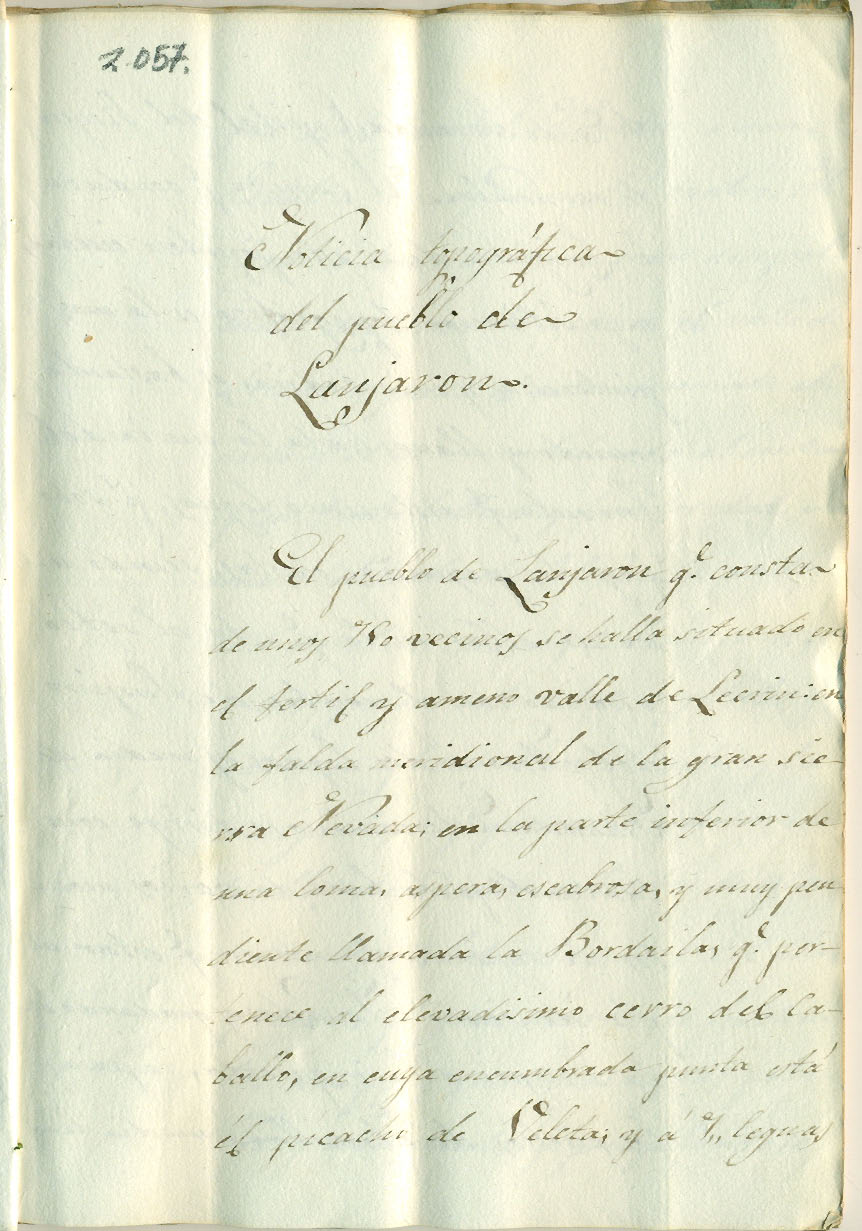 2.057.
Noticia topográfica
del pueblo de
Lanjaron.
El pueblo de Lanjaron q.e consta
de unos vecinos se halla situado en
el fertil y ameno valle de Lecrin: en
la falda meridional de la gran sie-
rra Nevada; en la parte inferior de
una loma, aspera, escabrosa, y muy pen
diente llamada la Bordaila, q.e per-
tenece al elevadisimo cerro del Ca-
ballo, en cuya encumbrada punta está
él picacho de Veleta; y á leguas